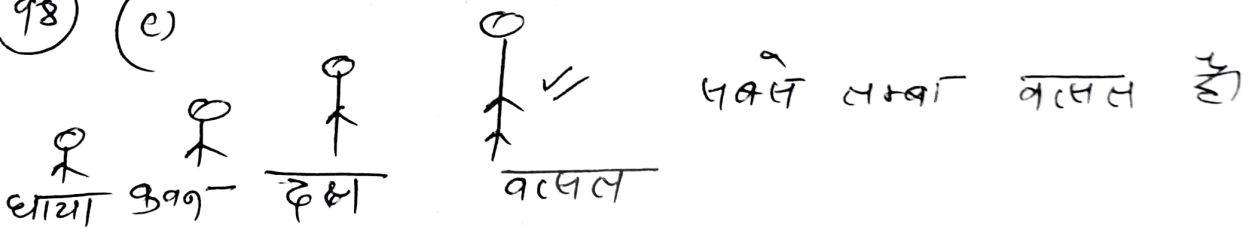 98 (c)
सबसे लम्बा वत्सल है।
छाया कुवन दक्ष वत्सल